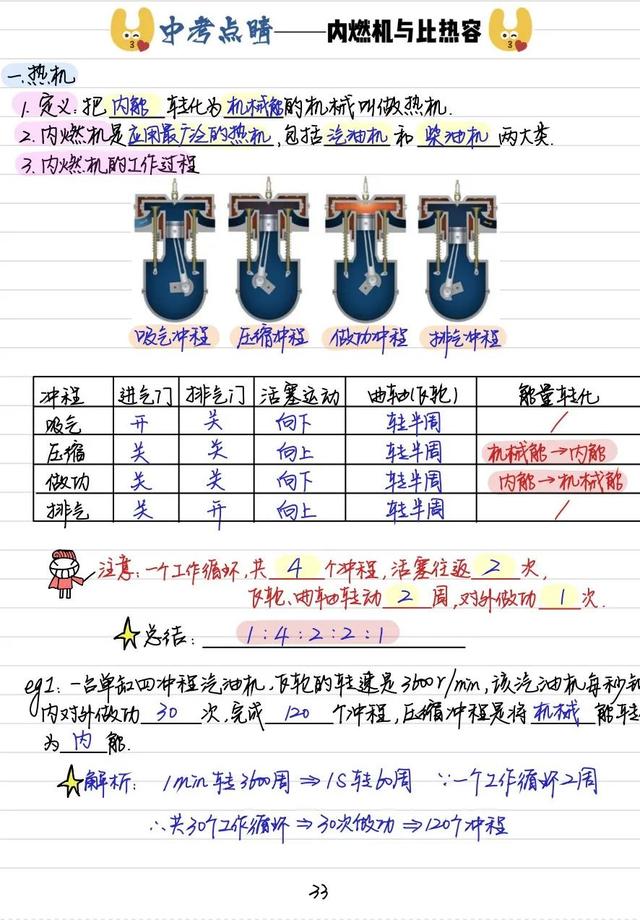 中考点睛——内燃机与比热容
一.热机
1.定义:把 内能 转化为 机械能 的机械叫做热机.
2.内燃机是应用最广泛的热机,包括 汽油机 和 柴油机 两大类.
3.内燃机的工作过程
吸气冲程 压缩冲程 做功冲程 排气冲程
冲程 进气门 排气门 活塞运动 曲轴(飞轮) 能量转化
吸气 开 关 向下 转半周 /
压缩 关 关 向上 转半周 机械能→内能
做功 关 关 向下 转半周 内能→机械能
排气 关 开 向上 转半周 /
注意:一个工作循环,共 4 个冲程,活塞往返 2 次,
飞轮、曲轴转动 2 周,对外做功 1 次.
总结: 1:4:2:2:1
eg1:一台单缸四冲程汽油机,飞轮的转速是3600r/min,该汽油机每秒钟
内对外做功 30 次,完成 120 个冲程,压缩冲程是将 机械 能转
为 内 能.
解析: 1min转3600周⇒1S转60周 ∵一个工作循环2周
∴共30个工作循环⇒30次做功⇒120个冲程
33